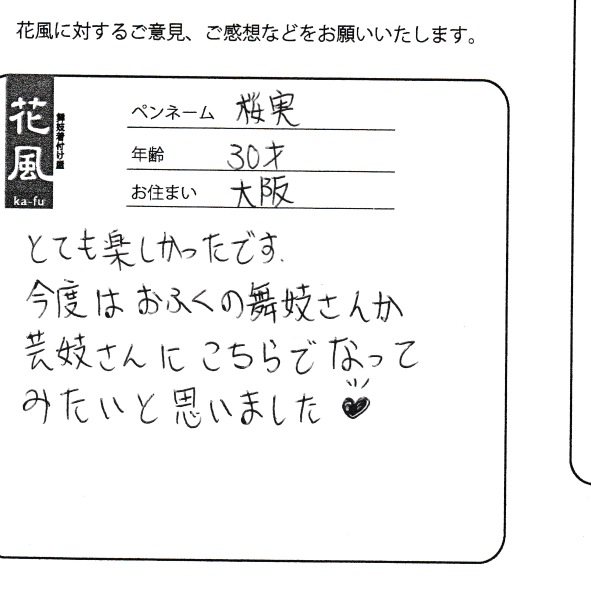 花風に対するご意見、ご感想などをお願いいたします。
花風
舞妓着付け屋
ka-fu
ペンネーム 桜実
年齢 30才
お住まい 大阪
とても楽しかったです.
今度はおふくの舞妓さんか
芸妓さんにこちらでなって
みたいと思いました♥